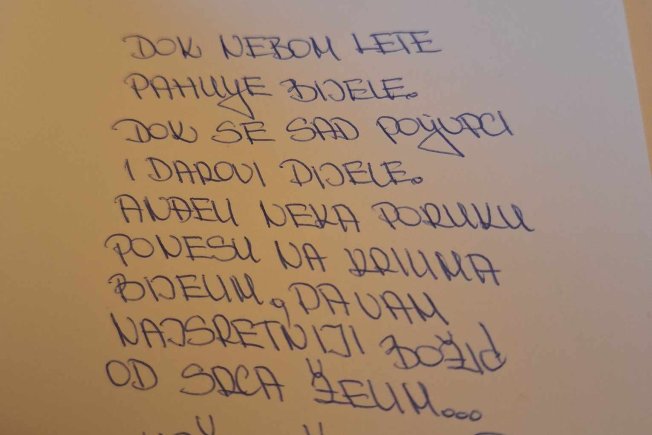 DOK NEBOM LETE
PAHULJE BIJELE.
DOK SE SAD POLJUPCI
I DAROVI DIJELE.
ANĐELI NEKA PORUKU
PONESU NA KRILIMA
BIJELIM, DA VAM
NAJSRETNIJI BOŽIĆ
OD SRCA ŽELIM...